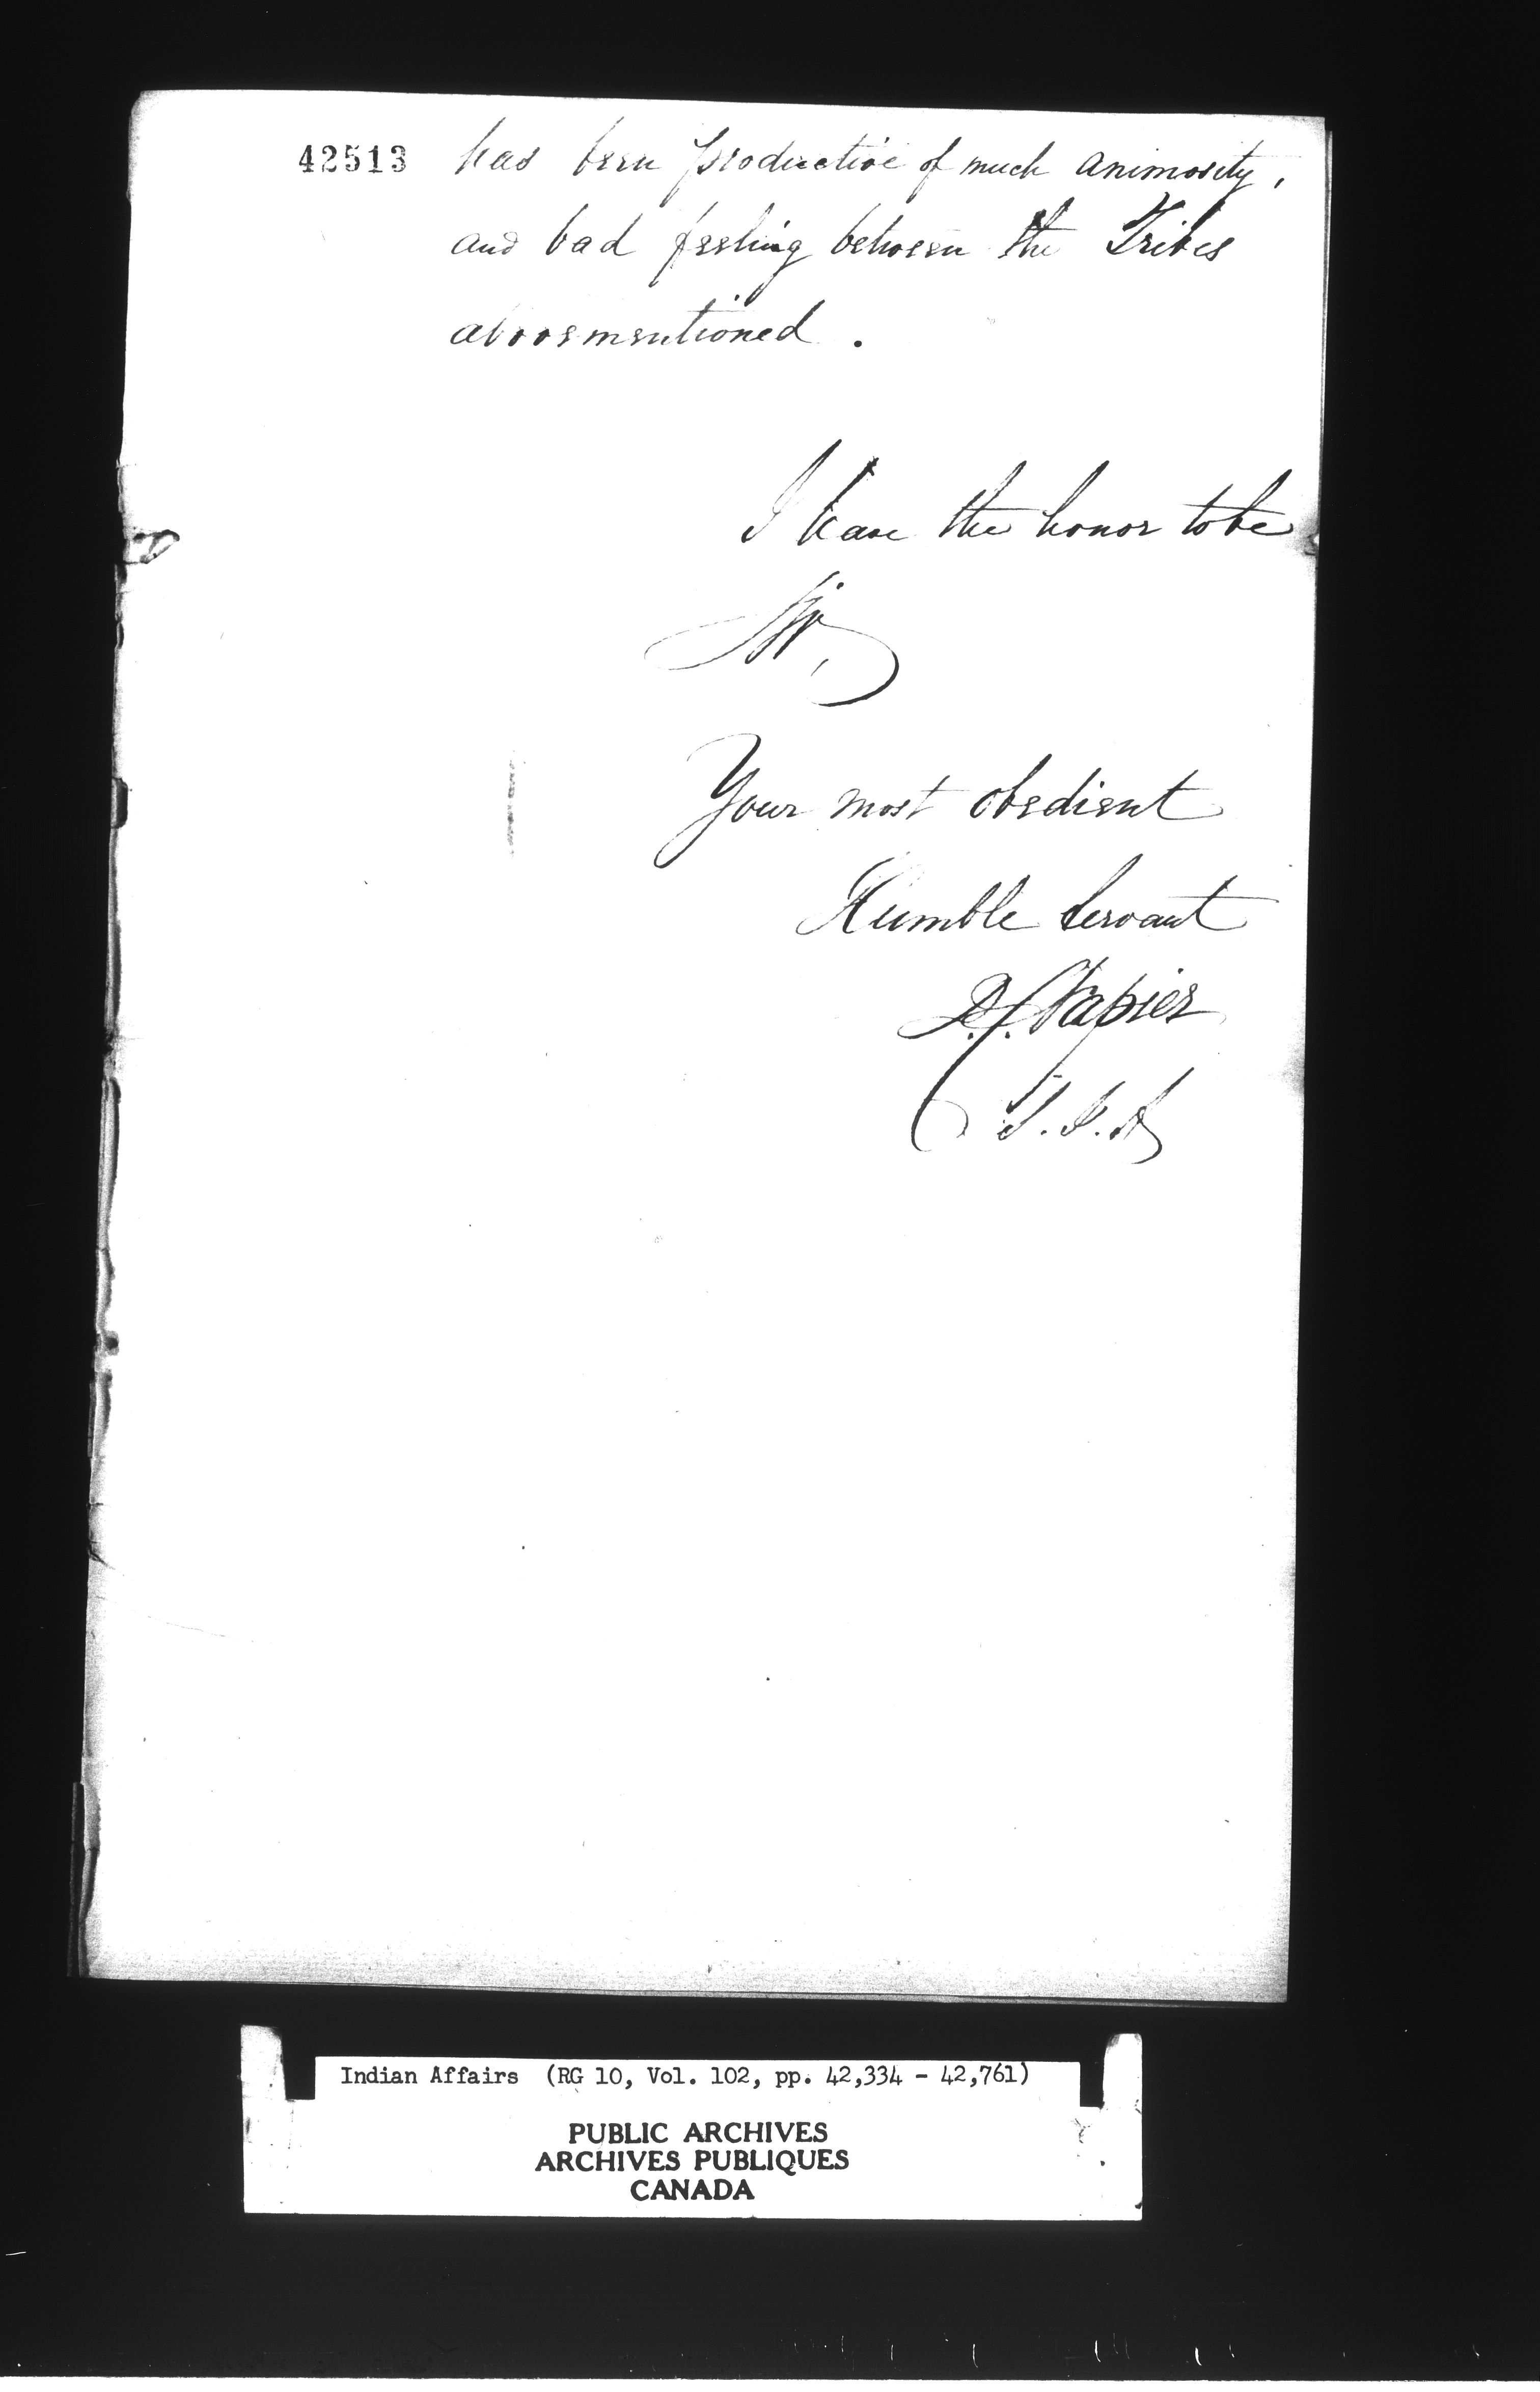 42513 has been productive of much animosity,
and bad feeling between the Tribes
abovementioned.
I have the honor to be
Sir,
Your most obedient
Humble Servant
D. C. Napier
S. I. A
Indian Affairs (RG 10, Vol. 102, pp. 42,334 - 42,761)
PUBLIC ARCHIVES
ARCHIVES PUBLIQUES
CANADA